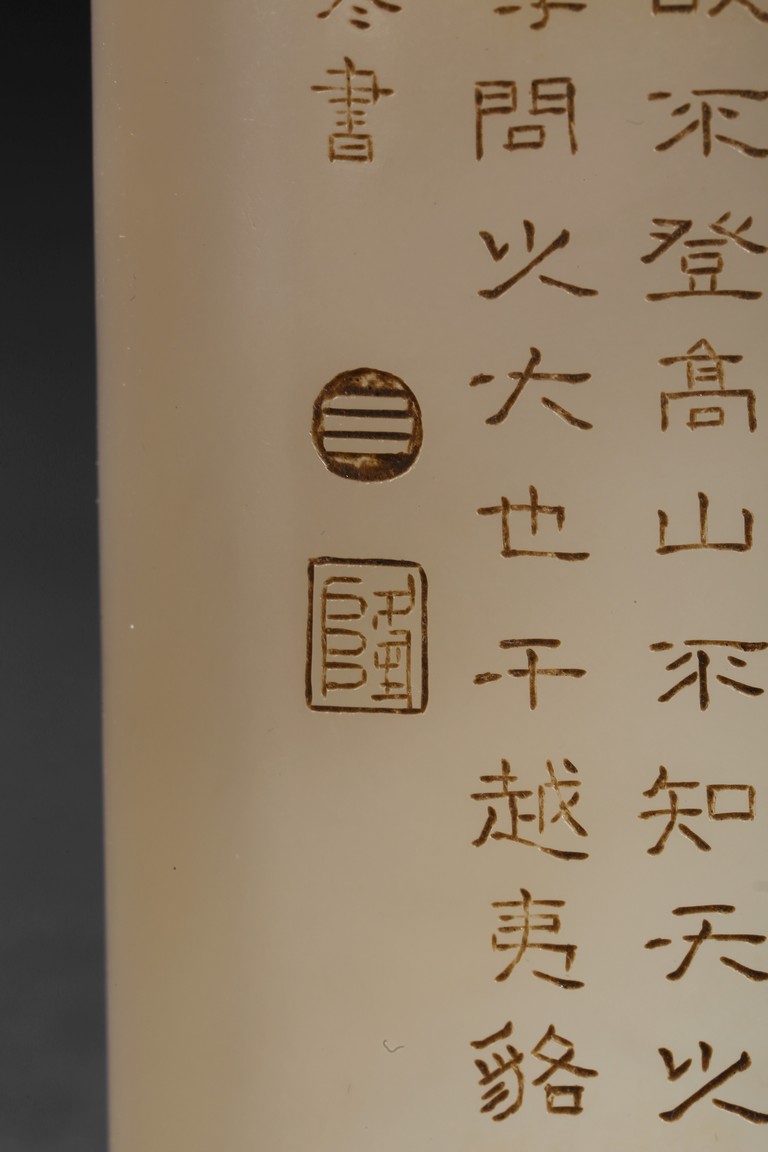 故不登高山不知天之
學問之大也干越夷貉
書
☰
隆